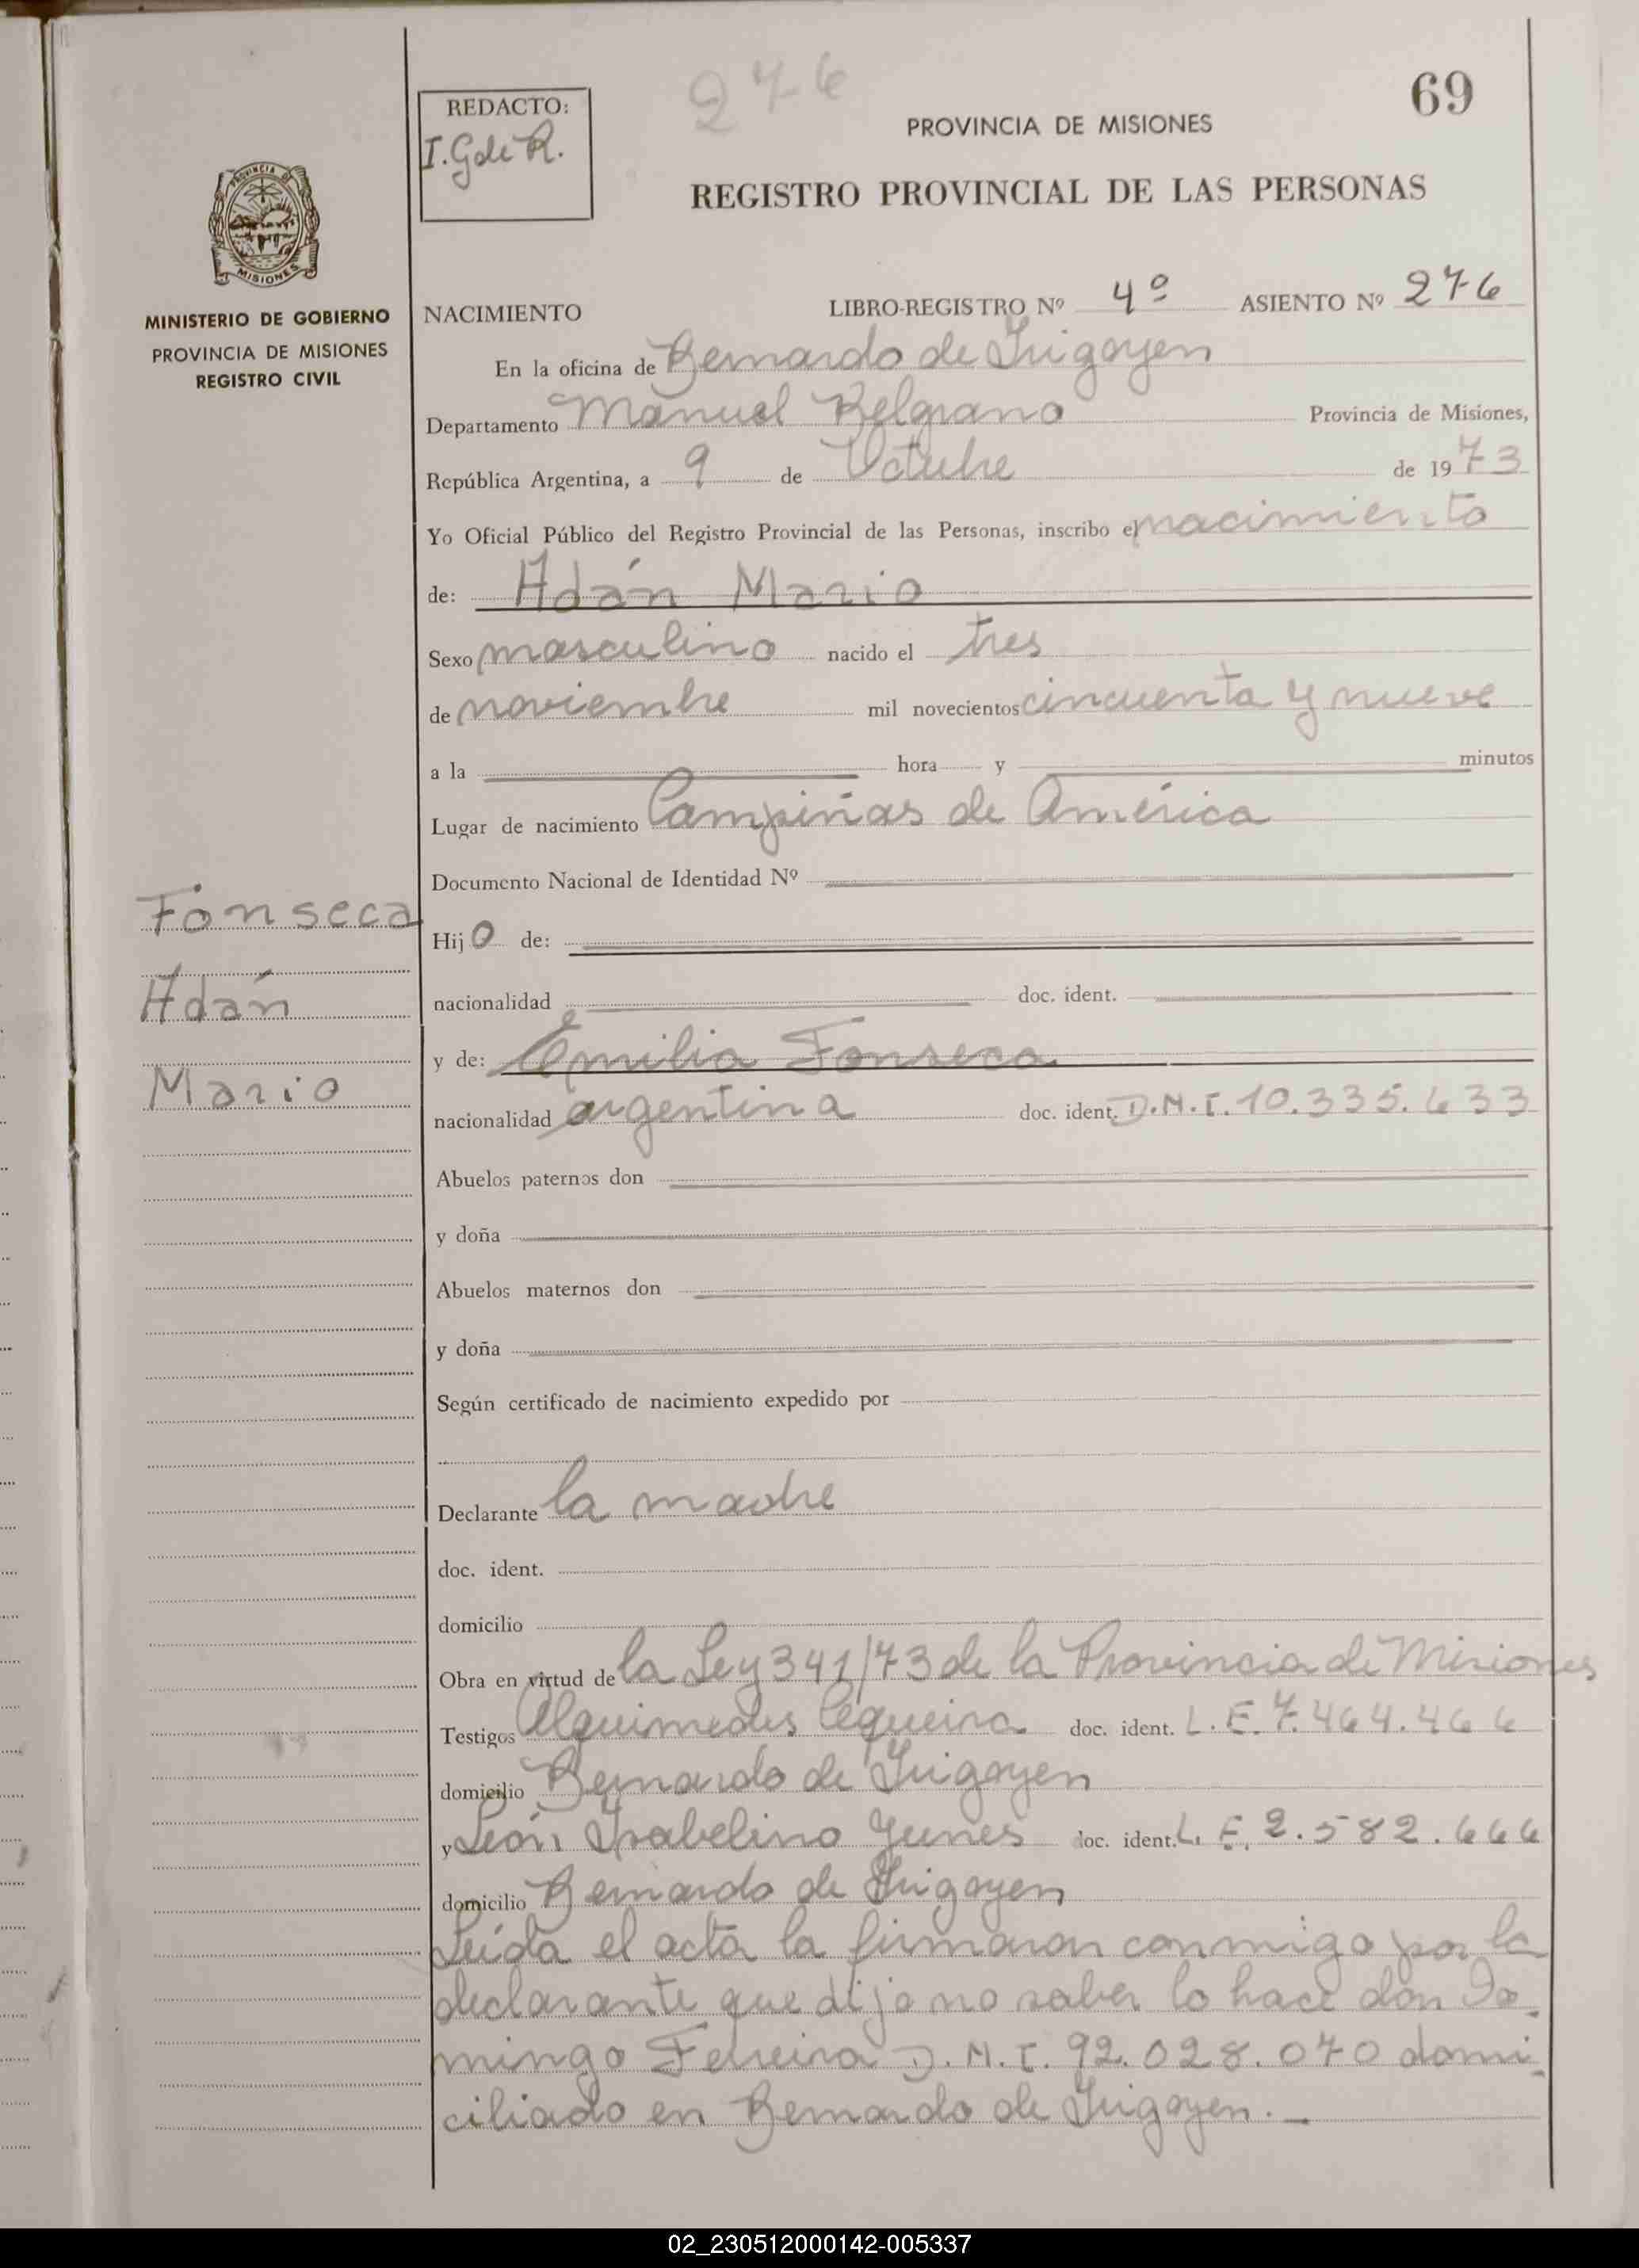 276
69
REDACTO:
I. G de R.
PROVINCIA DE MISIONES
REGISTRO PROVINCIAL DE LAS PERSONAS
PROVINCIA DE
MISIONES
MINISTERIO DE GOBIERNO
PROVINCIA DE MISIONES
REGISTRO CIVIL
NACIMIENTO LIBRO-REGISTRO Nº 4º ASIENTO Nº 276
En la oficina de Bernardo de Irigoyen
Departamento Manuel Belgrano Provincia de Misiones,
República Argentina, a 9 de Octubre de 1973
Yo Oficial Público del Registro Provincial de las Personas, inscribo el nacimiento
de: Adán Mario
Sexo masculino nacido el tres
de noviembre mil novecientos cincuenta y nueve
a la hora y minutos
Lugar de nacimiento Campiñas de América
Documento Nacional de Identidad Nº
Fonseca
Adán
Mario
Hijo de:
nacionalidad doc. ident.
y de: Emilia Fonseca
nacionalidad argentina doc. ident. D.N.I. 10.335.633
Abuelos paternos don
y doña
Abuelos maternos don
y doña
Según certificado de nacimiento expedido por
Declarante la madre
doc. ident.
domicilio
Obra en virtud de la Ley 341/73 de la Provincia de Misiones
Testigos Alquimedes Cequeira doc. ident. L.E. 7.464.466
domicilio Bernardo de Irigoyen
y León Isabelino Yunes doc. ident. L.E. 2.582.666
domicilio Bernardo de Irigoyen
Leída el acta la firmaron conmigo por la
declarante que dijo no saber lo hace don Do-
mingo Ferreira D.N.I. 92.028.070 domi-
ciliado en Bernardo de Irigoyen.-
02_230512000142-005337